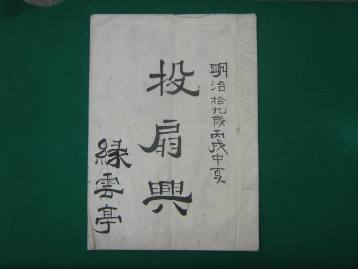 明治拾九歳丙戌中夏
投扇興
緑雲亭